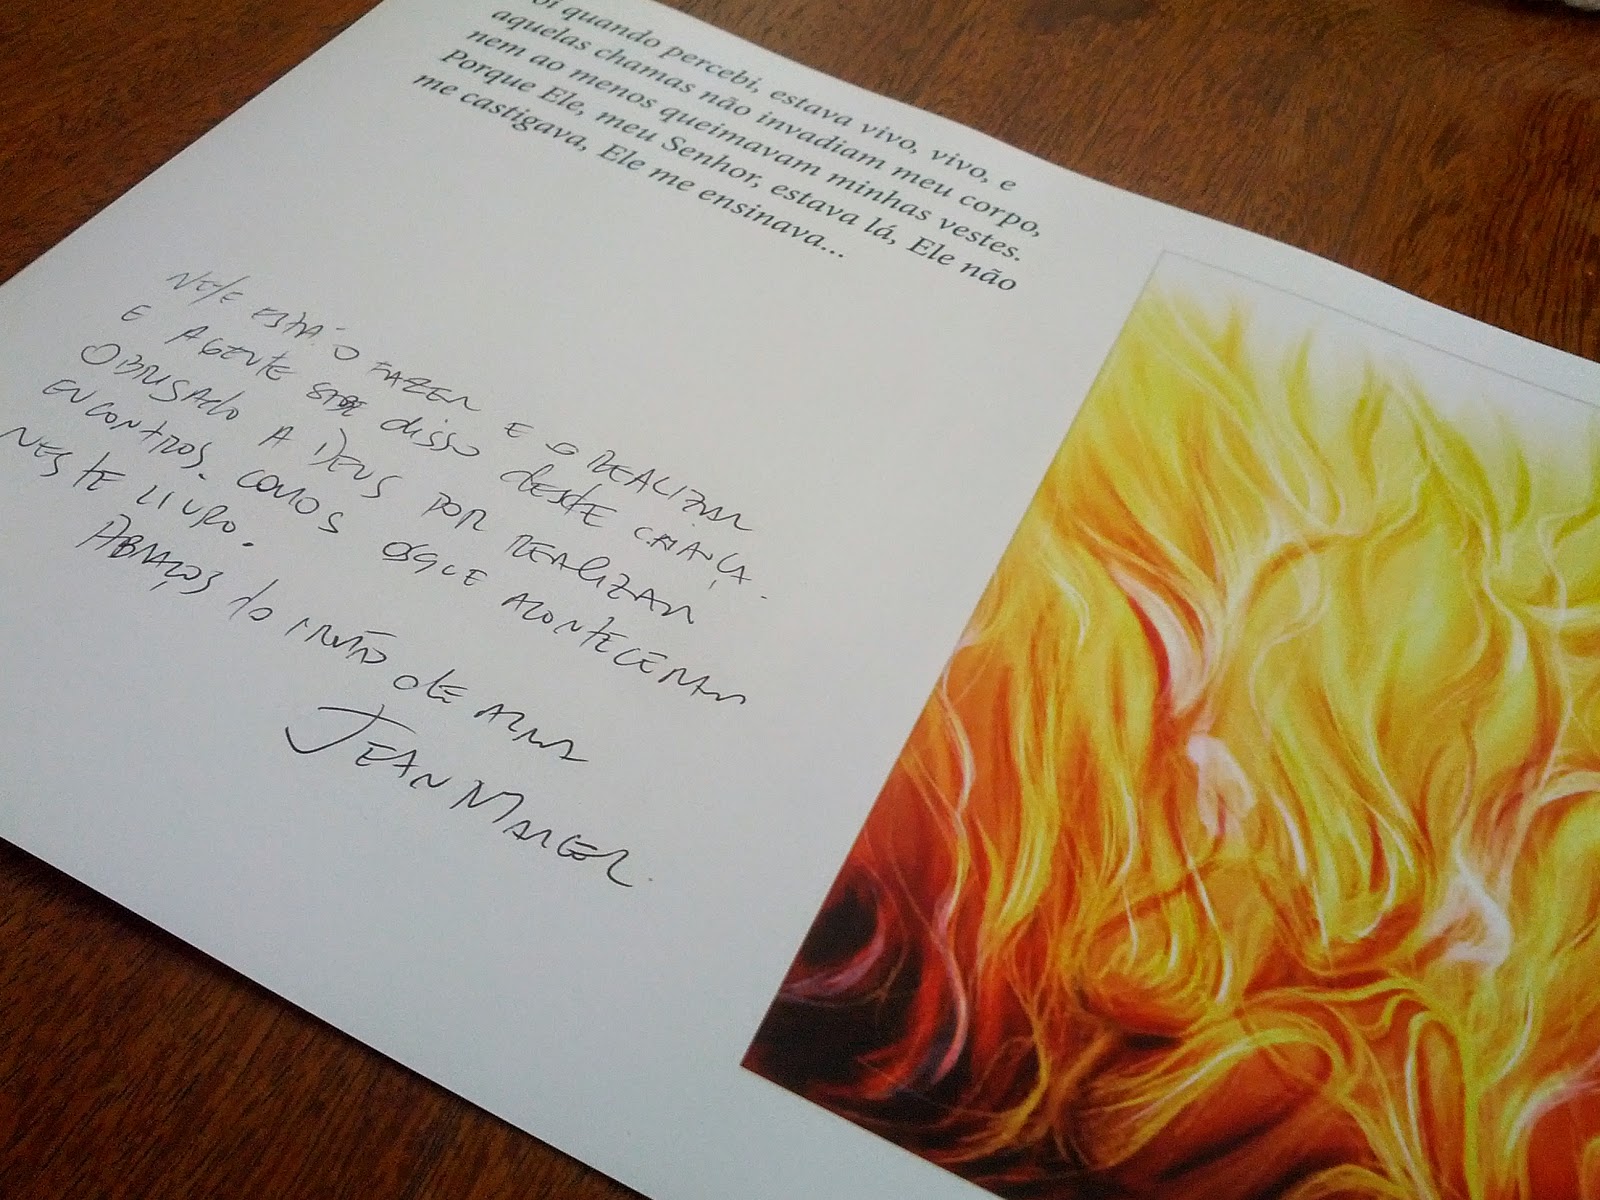 oi quando percebi, estava vivo, vivo, e
aquelas chamas não invadiam meu corpo,
nem ao menos queimavam minhas vestes.
Porque Ele, meu Senhor, estava lá, Ele não
me castigava, Ele me ensinava...
ESTÁ O FAZER E O REALIZAR
E A GENTE disso deste CRIANÇA.
OBRIGADO A DEUS POR REALIZAR
ENCONTROS. COMOS OSQUE ACONTECERAM
NESTE LIVRO.
ABRAÇOS do IRMÃO DE ALMA
JEAN MARCEL